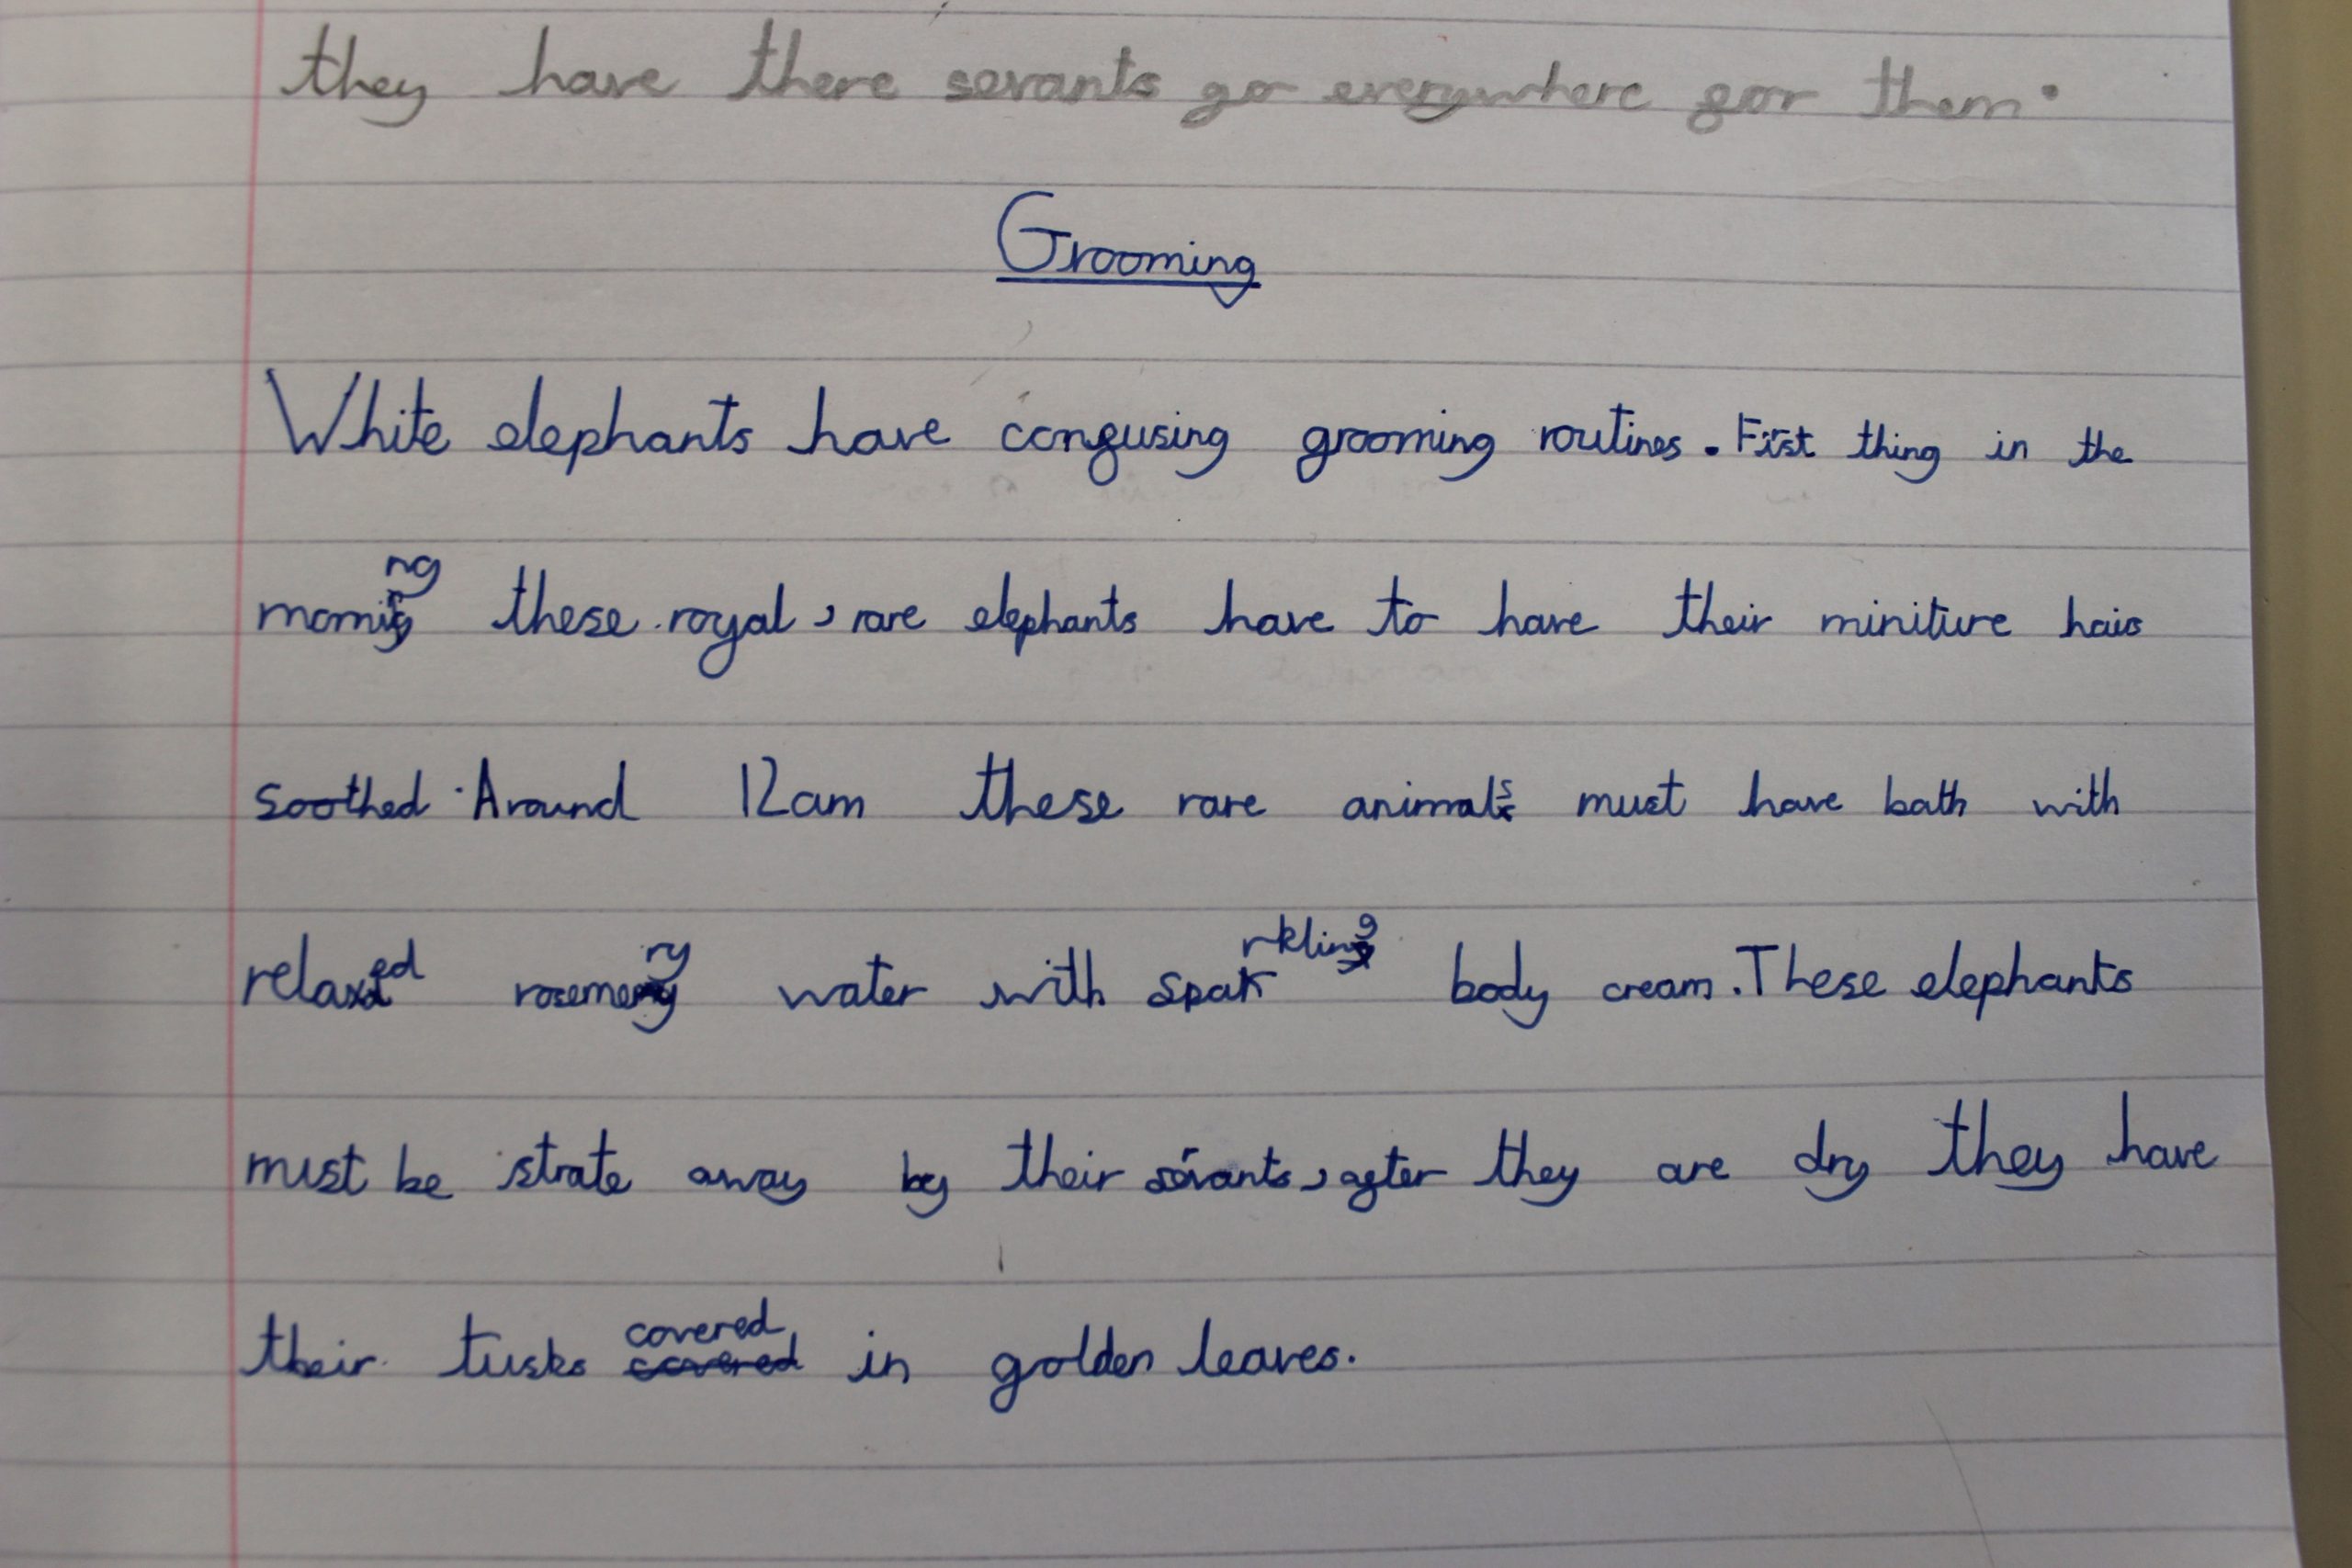 they have there sevants go everywhere for them.
Grooming
White elephants have confusing grooming routines. First thing in the
morning these royal, rare elephants have to have their miniture hair
soothed. Around 12am these rare animals must have bath with
relaxed rosemery water with sparkling body cream. These elephants
must be strate away by their sevants, after they are dry they have
their tusks covered in golden leaves.